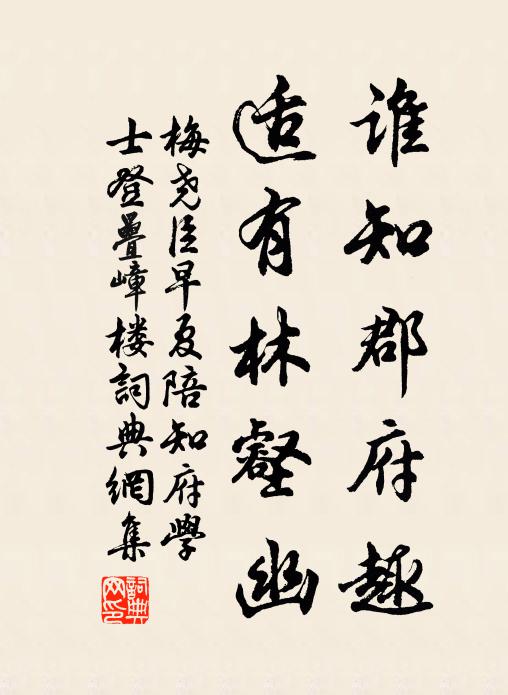 谁知郡府趣
适有林壑幽
梅尧臣早夏陪知府學
士登疊嶂楼詞典網集
詞典网印